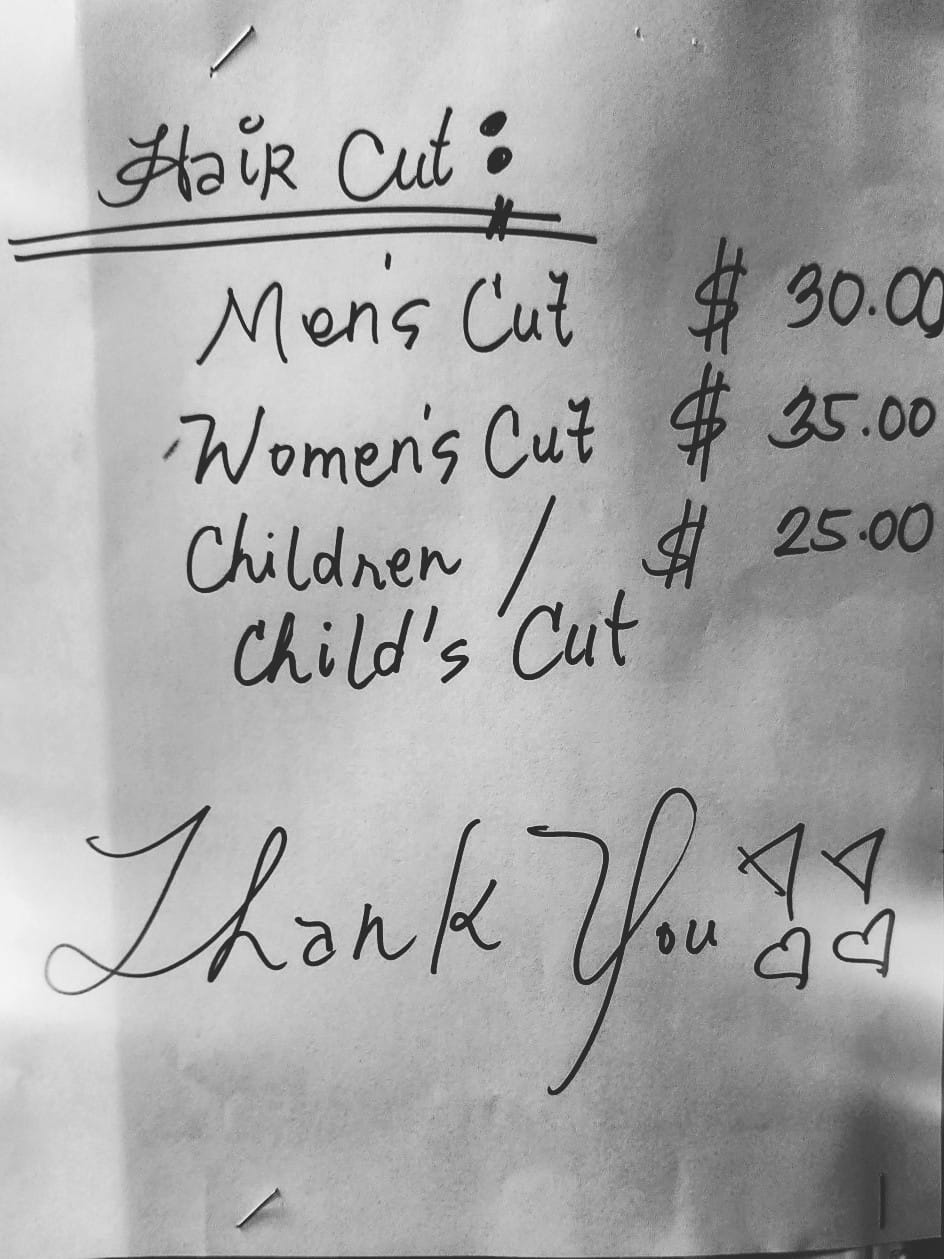 Hair Cut:
Men's Cut $ 30.00
Women's Cut $ 35.00
Children / $ 25.00
Child's Cut
Thank You !!